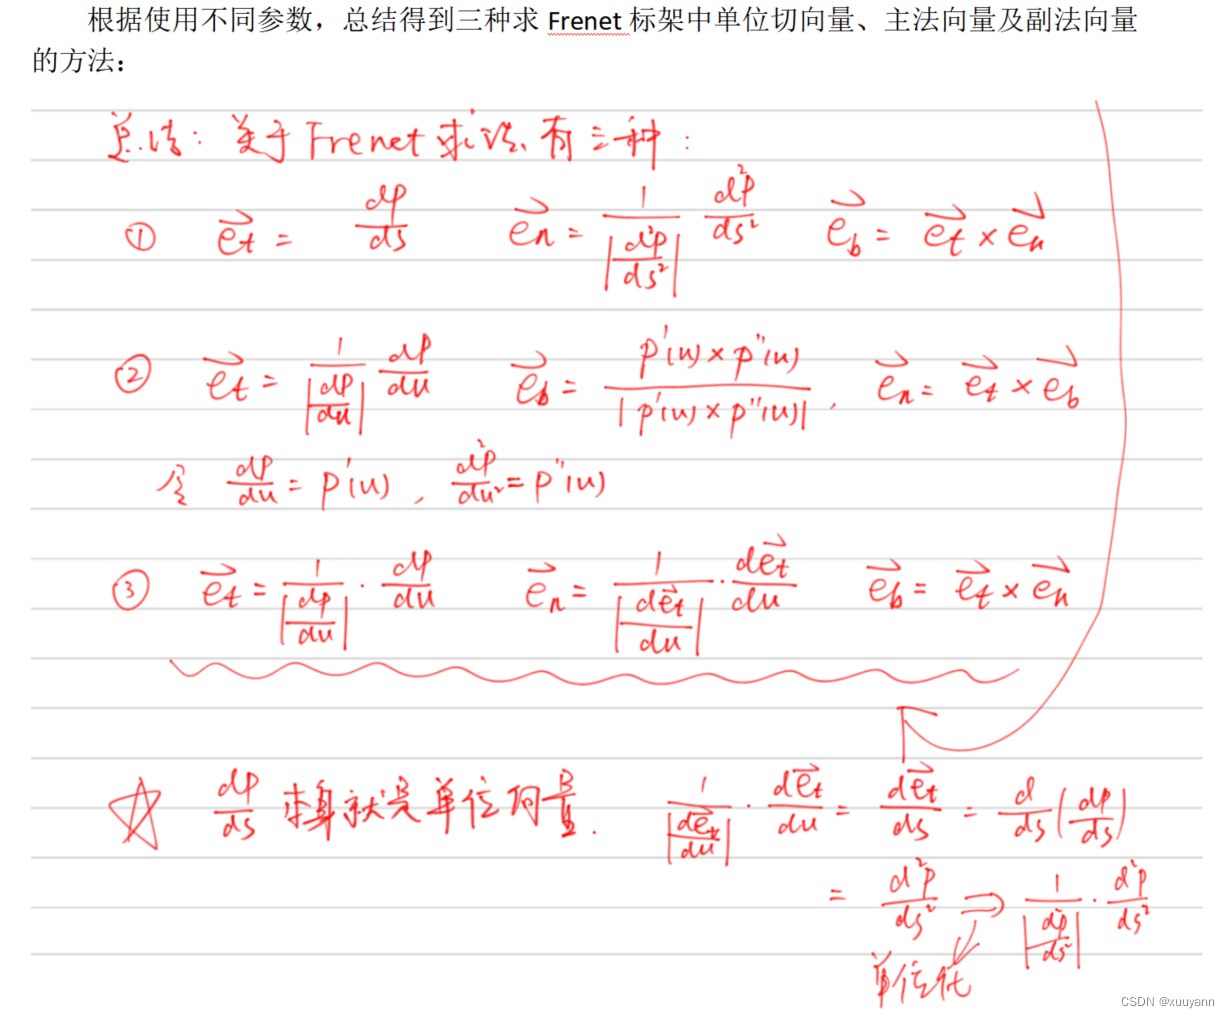 根据使用不同参数，总结得到三种求 Frenet 标架中单位切向量、主法向量及副法向量
的方法：
总结：关于Frenet求法，有三种：
① \vec{e_t} = \frac{dp}{ds} \vec{e_n} = \frac{1}{|\frac{d^2p}{ds^2}|} \frac{d^2p}{ds^2} \vec{e_b} = \vec{e_t} × \vec{e_n}
② \vec{e_t} = \frac{1}{|\frac{dp}{du}|} \frac{dp}{du} \vec{e_b} = \frac{p'(u) × p''(u)}{|p'(u) × p''(u)|}, \vec{e_n} = \vec{e_t} × \vec{e_b}
令 \frac{dp}{du} = p'(u), \frac{d^2p}{du^2} = p''(u)
③ \vec{e_t} = \frac{1}{|\frac{dp}{du}|} · \frac{dp}{du} \vec{e_n} = \frac{1}{|\frac{d\vec{e_t}}{du}|} · \frac{d\vec{e_t}}{du} \vec{e_b} = \vec{e_t} × \vec{e_n}
\frac{dp}{ds} 本身就是单位向量. \frac{1}{|\frac{d\vec{e_t}}{du}|} · \frac{d\vec{e_t}}{du} = \frac{d\vec{e_t}}{ds} = \frac{d}{ds}(\frac{dp}{ds})
= \frac{d^2p}{ds^2} ⇒ \frac{1}{|\frac{d^2p}{ds^2}|} · \frac{d^2p}{ds^2}
单位化
CSDN @xuuyann